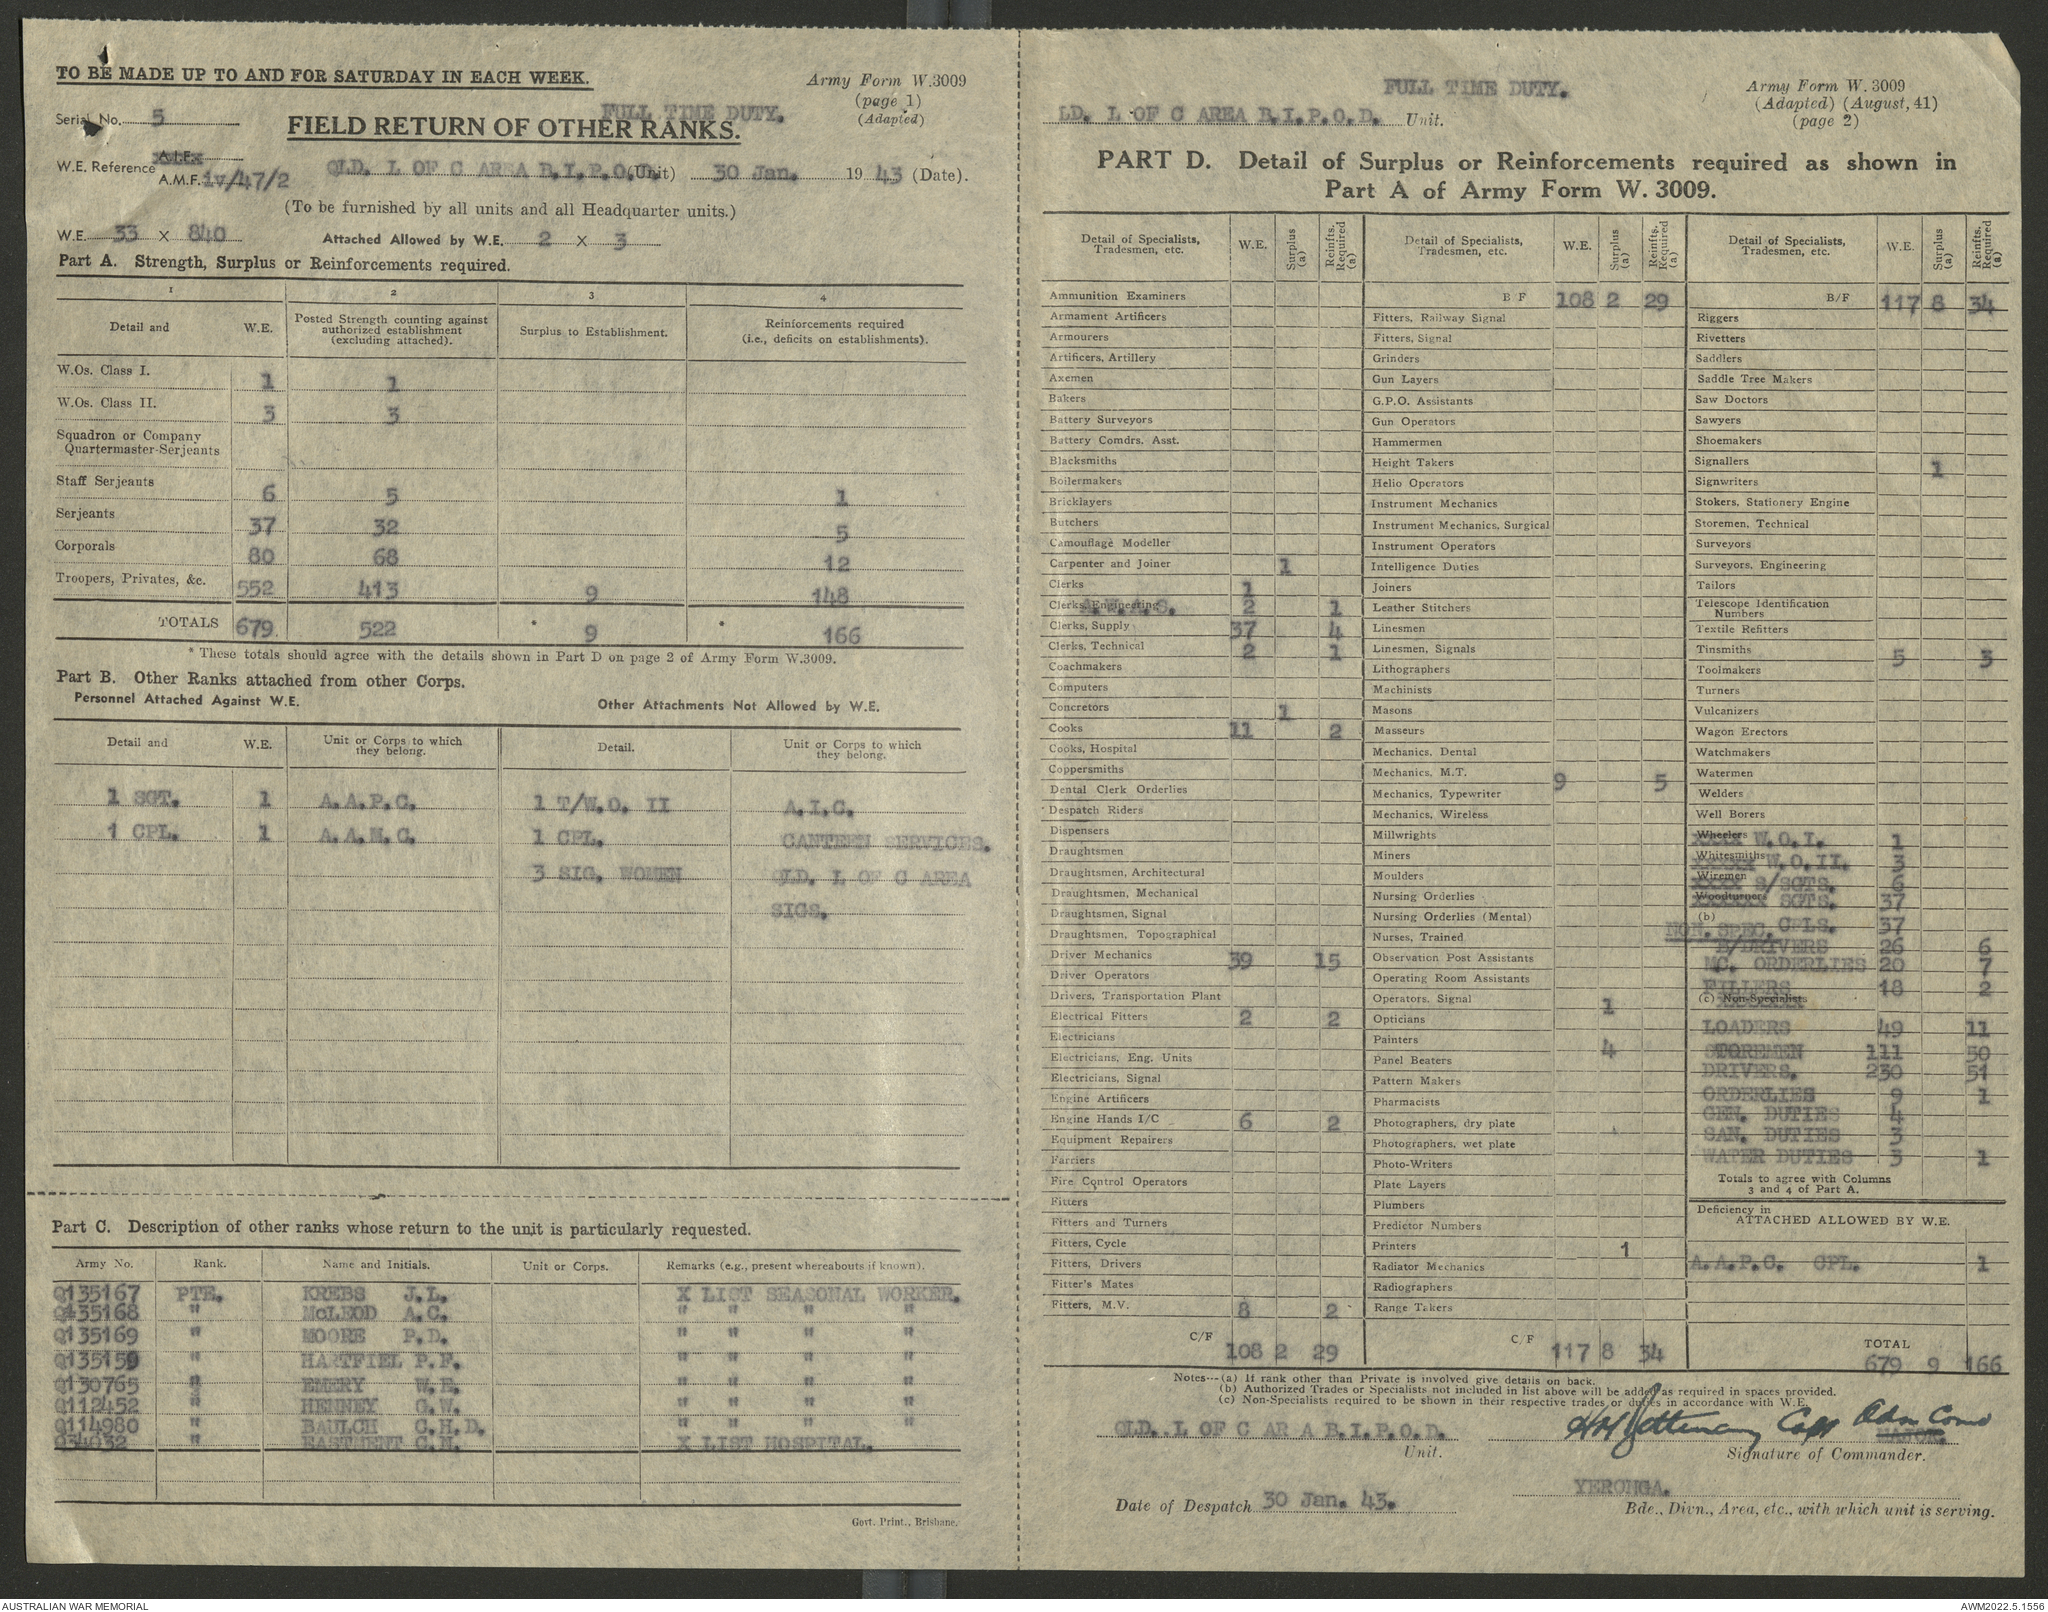 TO BE MADE UP TO AND FOR SATURDAY IN EACH WEEK.
Army Form W.3009
(page 1)
(Adapted)
Serial No. 5
FULL TIME DUTY.
FIELD RETURN OF OTHER RANKS.
W.E. Reference A.I.F.
A.M.F. iv/47/2
QLD. L OF C AREA B.I.P.O.D. (Unit) 30 Jan. 1943 (Date).
(To be furnished by all units and all Headquarter units.)
W.E. 33 x 840 Attached Allowed by W.E. 2 x 3
Part A. Strength, Surplus or Reinforcements required.
1 2 3 4
Detail and W.E. Posted Strength counting against authorized establishment (excluding attached). Surplus to Establishment. Reinforcements required (i.e., deficits on establishments).
W.Os. Class I. 1 1
W.Os. Class II. 3 3
Squadron or Company
Quartermaster-Serjeants
Staff Serjeants 6 5 1
Serjeants 37 32 5
Corporals 80 68 12
Troopers, Privates, &c. 552 413 9 148
TOTALS 679 522 * 9 * 166
* These totals should agree with the details shown in Part D on page 2 of Army Form W.3009.
Part B. Other Ranks attached from other Corps.
Personnel Attached Against W.E. Other Attachments Not Allowed by W.E.
Detail and W.E. Unit or Corps to which they belong. Detail. Unit or Corps to which they belong.
1 SGT. 1 A.A.P.C. 1 T/W.O. II A.I.C.
1 CPL. 1 A.A.M.C. 1 CPL. CANTEEN SERVICES.
3 SIG. WOMEN QLD. L OF C AREA
SIGS.
Part C. Description of other ranks whose return to the unit is particularly requested.
Army No. Rank. Name and Initials. Unit or Corps. Remarks (e.g., present whereabouts if known).
Q135167 PTE. KREBS J.L. X LIST SEASONAL WORKER.
Q135168 " McLEOD A.C. " " " "
Q135169 " MOORE P.D. " " " "
Q135159 " HARTFIEL P.F. " " " "
Q130765 " EMERY W.E. " " " "
Q112452 " HENNEY G.W. " " " "
Q114980 " BAULCH C.H.D. " " " "
Q34032 " EASTMENT C.N. X LIST HOSPITAL.
Govt. Print., Brisbane.
FULL TIME DUTY.
Army Form W. 3009
(Adapted) (August, 41)
(page 2)
LD. L OF C AREA B.I.P.O.D. Unit.
PART D. Detail of Surplus or Reinforcements required as shown in
Part A of Army Form W. 3009.
Detail of Specialists, Tradesmen, etc. W.E. Surplus (a) Reinfts. Required (a)
Ammunition Examiners
Armament Artificers
Armourers
Artificers, Artillery
Axemen
Bakers
Battery Surveyors
Battery Comdrs. Asst.
Blacksmiths
Boilermakers
Bricklayers
Butchers
Camouflage Modeller
Carpenter and Joiner 1
Clerks 1
Clerks, Engineering A.W.A.S. 2 1
Clerks, Supply 37 4
Clerks, Technical 2 1
Coachmakers
Computers
Concretors 1
Cooks 11 2
Cooks, Hospital
Coppersmiths
Dental Clerk Orderlies
Despatch Riders
Dispensers
Draughtsmen
Draughtsmen, Architectural
Draughtsmen, Mechanical
Draughtsmen, Signal
Draughtsmen, Topographical
Driver Mechanics 39 15
Driver Operators
Drivers, Transportation Plant
Electrical Fitters 2 2
Electricians
Electricians, Eng. Units
Electricians, Signal
Engine Artificers
Engine Hands I/C 6 2
Equipment Repairers
Farriers
Fire Control Operators
Fitters
Fitters and Turners
Fitters, Cycle
Fitters, Drivers
Fitter's Mates
Fitters, M.V. 8 2
C/F 108 2 29
Detail of Specialists, Tradesmen, etc. W.E. Surplus (a) Reinfts. Required (a)
B F 108 2 29
Fitters, Railway Signal
Fitters, Signal
Grinders
Gun Layers
G.P.O. Assistants
Gun Operators
Hammermen
Height Takers
Helio Operators
Instrument Mechanics
Instrument Mechanics, Surgical
Instrument Operators
Intelligence Duties
Joiners
Leather Stitchers
Linesmen
Linesmen, Signals
Lithographers
Machinists
Masons
Masseurs
Mechanics, Dental
Mechanics, M.T. 9 5
Mechanics, Typewriter
Mechanics, Wireless
Millwrights
Miners
Moulders
Nursing Orderlies
Nursing Orderlies (Mental)
Nurses, Trained
Observation Post Assistants
Operating Room Assistants
Operators, Signal 1
Opticians
Painters 4
Panel Beaters
Pattern Makers
Pharmacists
Photographers, dry plate
Photographers, wet plate
Photo-Writers
Plate Layers
Plumbers
Predictor Numbers
Printers 1
Radiator Mechanics
Radiographers
Range Takers
C/F 117 8 34
Detail of Specialists, Tradesmen, etc. W.E. Surplus (a) Reinfts. Required (a)
B/F 117 8 34
Riggers
Rivetters
Saddlers
Saddle Tree Makers
Saw Doctors
Sawyers
Shoemakers
Signallers 1
Signwriters
Stokers, Stationery Engine
Storemen, Technical
Surveyors
Surveyors, Engineering
Tailors
Telescope Identification
Numbers
Textile Refitters
Tinsmiths 5 3
Toolmakers
Turners
Vulcanizers
Wagon Erectors
Watchmakers
Watermen
Welders
Well Borers
Wheelers W.O.I. 1
Whitesmiths W.O.II. 3
Wiremen S/SGTS. 6
Woodturners SGTS. 37
(b) CPLS. 37
NON. SPEC. B/DRIVERS 26 6
MC. ORDERLIES 20 7
FILLERS 18 2
(c) Non-Specialists
LOADERS 49 11
STOREMEN 111 50
DRIVERS. 230 51
ORDERLIES 9 1
GEN. DUTIES 4
SAN. DUTIES 3
WATER DUTIES 3 1
Totals to agree with Columns
3 and 4 of Part A.
Deficiency in
ATTACHED ALLOWED BY W.E.
A.A.P.C. CPL. 1
TOTAL
679 9 166
Notes---(a) If rank other than Private is involved give details on back.
(b) Authorized Trades or Specialists not included in list above will be added as required in spaces provided.
(c) Non-Specialists required to be shown in their respective trades or duties in accordance with W.E.
QLD. L OF C AR A B.I.P.O.D. Capt Adm Comd
Unit. MAJOR.
Signature of Commander.
YERONGA.
Date of Despatch 30 Jan. 43. Bde., Divn., Area, etc., with which unit is serving.
AUSTRALIAN WAR MEMORIAL
AWM2022.5.1556